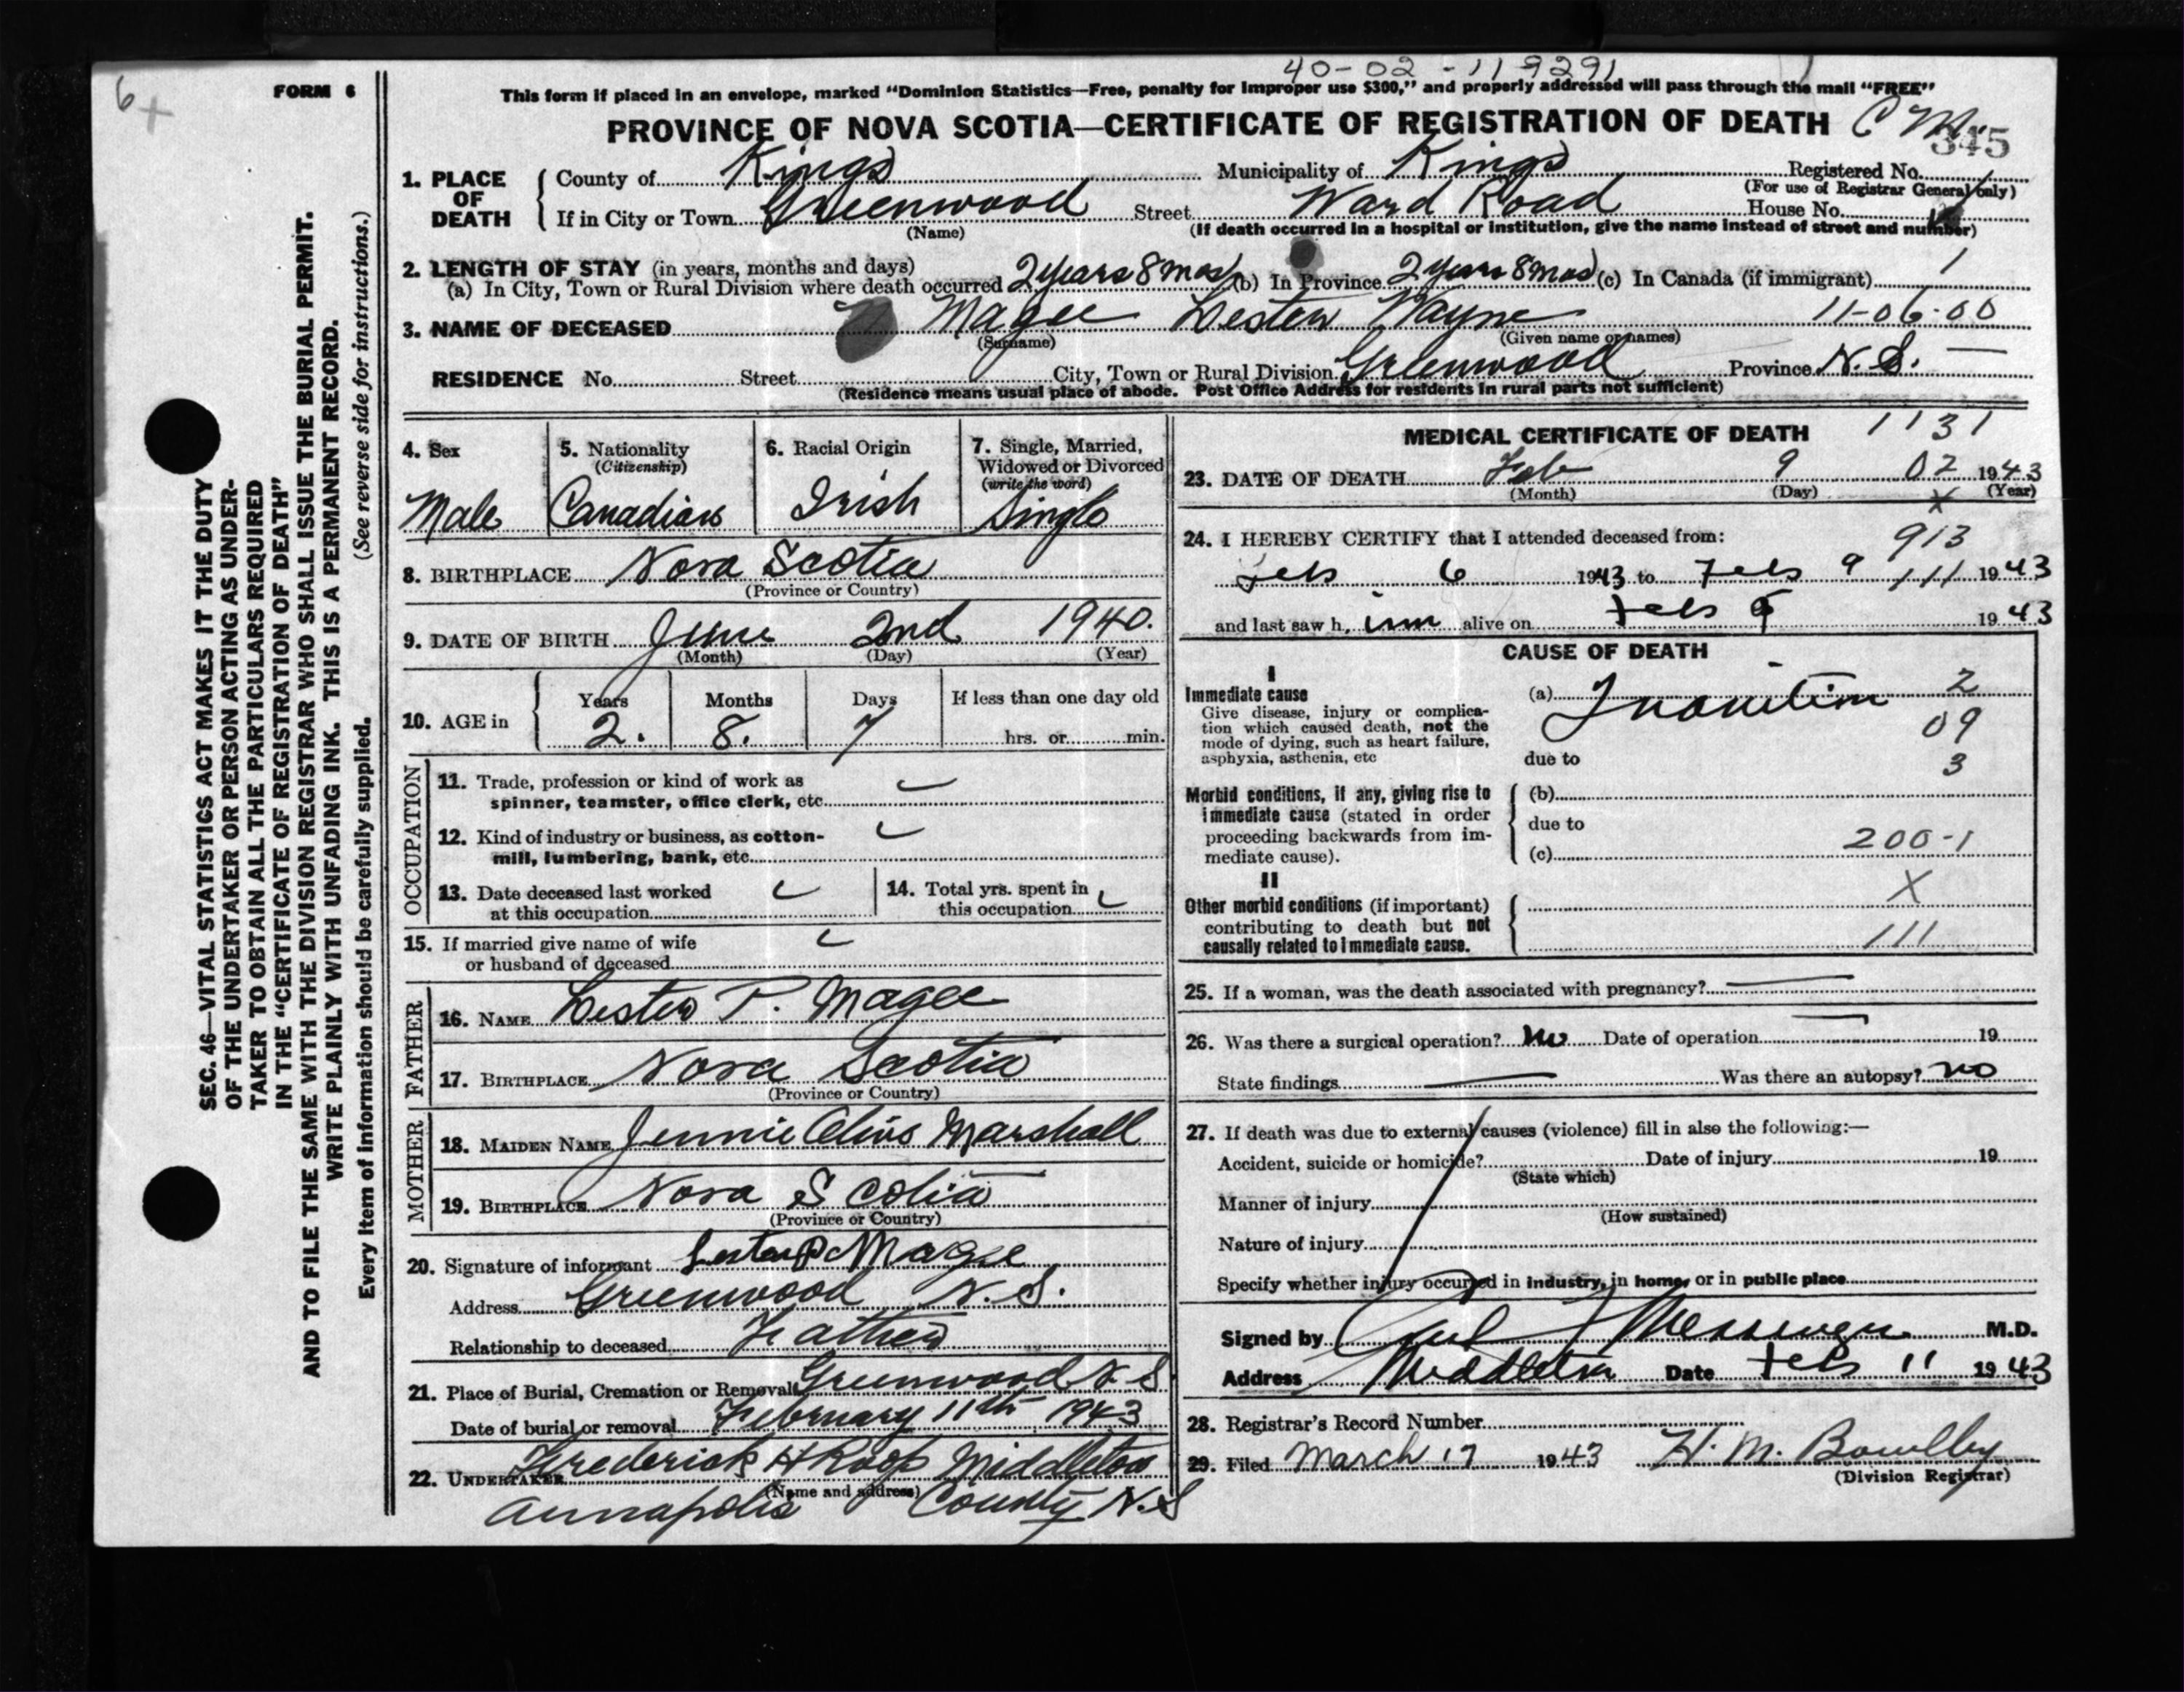 40-02-119291
6+
FORM 6
This form if placed in an envelope, marked "Dominion Statistics—Free, penalty for improper use $300," and properly addressed will pass through the mail "FREE"
PROVINCE OF NOVA SCOTIA—CERTIFICATE OF REGISTRATION OF DEATH C M.
345
1. PLACE OF DEATH County of Kings Municipality of Kings Registered No.
(For use of Registrar General only)
If in City or Town Greenwood Street Ward Road House No.
(Name) (If death occurred in a hospital or institution, give the name instead of street and number)
2. LENGTH OF STAY (in years, months and days)
(a) In City, Town or Rural Division where death occurred 2 years 8 mos (b) In Province 2 years 8 mos (c) In Canada (if immigrant) 1
3. NAME OF DECEASED Magee Lester Wayne 11-06-00
(Surname) (Given name or names)
RESIDENCE No. Street City, Town or Rural Division Greenwood Province N.S. —
(Residence means usual place of abode. Post Office Address for residents in rural parts not sufficient)
4. Sex 5. Nationality 6. Racial Origin 7. Single, Married,
(Citizenship) Widowed or Divorced
(write the word)
Male Canadian Irish Single
8. BIRTHPLACE Nova Scotia
(Province or Country)
9. DATE OF BIRTH June 2nd 1940.
(Month) (Day) (Year)
10. AGE in Years Months Days If less than one day old
2. 8. 7 hrs. or min.
OCCUPATION
11. Trade, profession or kind of work as
spinner, teamster, office clerk, etc.
12. Kind of industry or business, as cotton-
mill, lumbering, bank, etc.
13. Date deceased last worked 14. Total yrs. spent in
at this occupation this occupation
15. If married give name of wife
or husband of deceased
FATHER
16. NAME Lester P. Magee
17. BIRTHPLACE Nova Scotia
(Province or Country)
MOTHER
18. MAIDEN NAME Jennie Marshall
19. BIRTHPLACE Nova Scotia
(Province or Country)
20. Signature of informant Lester P Magee
Address Greenwood N.S.
Relationship to deceased Father
21. Place of Burial, Cremation or Removal Greenwood N S
Date of burial or removal February 11th 1943
22. UNDERTAKER Frederick H Roop Middleton
(Name and address)
Annapolis County N.S
MEDICAL CERTIFICATE OF DEATH 1131
23. DATE OF DEATH Feb 9 02 1943
(Month) (Day) (Year)
x
24. I HEREBY CERTIFY that I attended deceased from: 913
Feb 6 1943 to Feb 9 111 1943
and last saw h im alive on Feb 9 1943
CAUSE OF DEATH
I
Immediate cause (a) Inanition 2
Give disease, injury or complica-
tion which caused death, not the 09
mode of dying, such as heart failure,
asphyxia, asthenia, etc due to 3
Morbid conditions, if any, giving rise to (b)
immediate cause (stated in order due to
proceeding backwards from im- 200-1
mediate cause). (c)
II
Other morbid conditions (if important) X
contributing to death but not
causally related to immediate cause. 111
25. If a woman, was the death associated with pregnancy? —
26. Was there a surgical operation? No Date of operation — 19
State findings — Was there an autopsy? no
27. If death was due to external causes (violence) fill in also the following:—
Accident, suicide or homicide? Date of injury 19
(State which)
Manner of injury
(How sustained)
Nature of injury
Specify whether injury occurred in industry, in home, or in public place
Signed by Messenger M.D.
Address Middleton Date Feb 11 1943
28. Registrar's Record Number
29. Filed March 17 1943 H. M. Bowlby
(Division Registrar)
SEC. 46—VITAL STATISTICS ACT MAKES IT THE DUTY
OF THE UNDERTAKER OR PERSON ACTING AS UNDER-
TAKER TO OBTAIN ALL THE PARTICULARS REQUIRED
IN THE "CERTIFICATE OF REGISTRATION OF DEATH"
AND TO FILE THE SAME WITH THE DIVISION REGISTRAR WHO SHALL ISSUE THE BURIAL PERMIT.
WRITE PLAINLY WITH UNFADING INK. THIS IS A PERMANENT RECORD.
Every item of information should be carefully supplied. (See reverse side for instructions.)